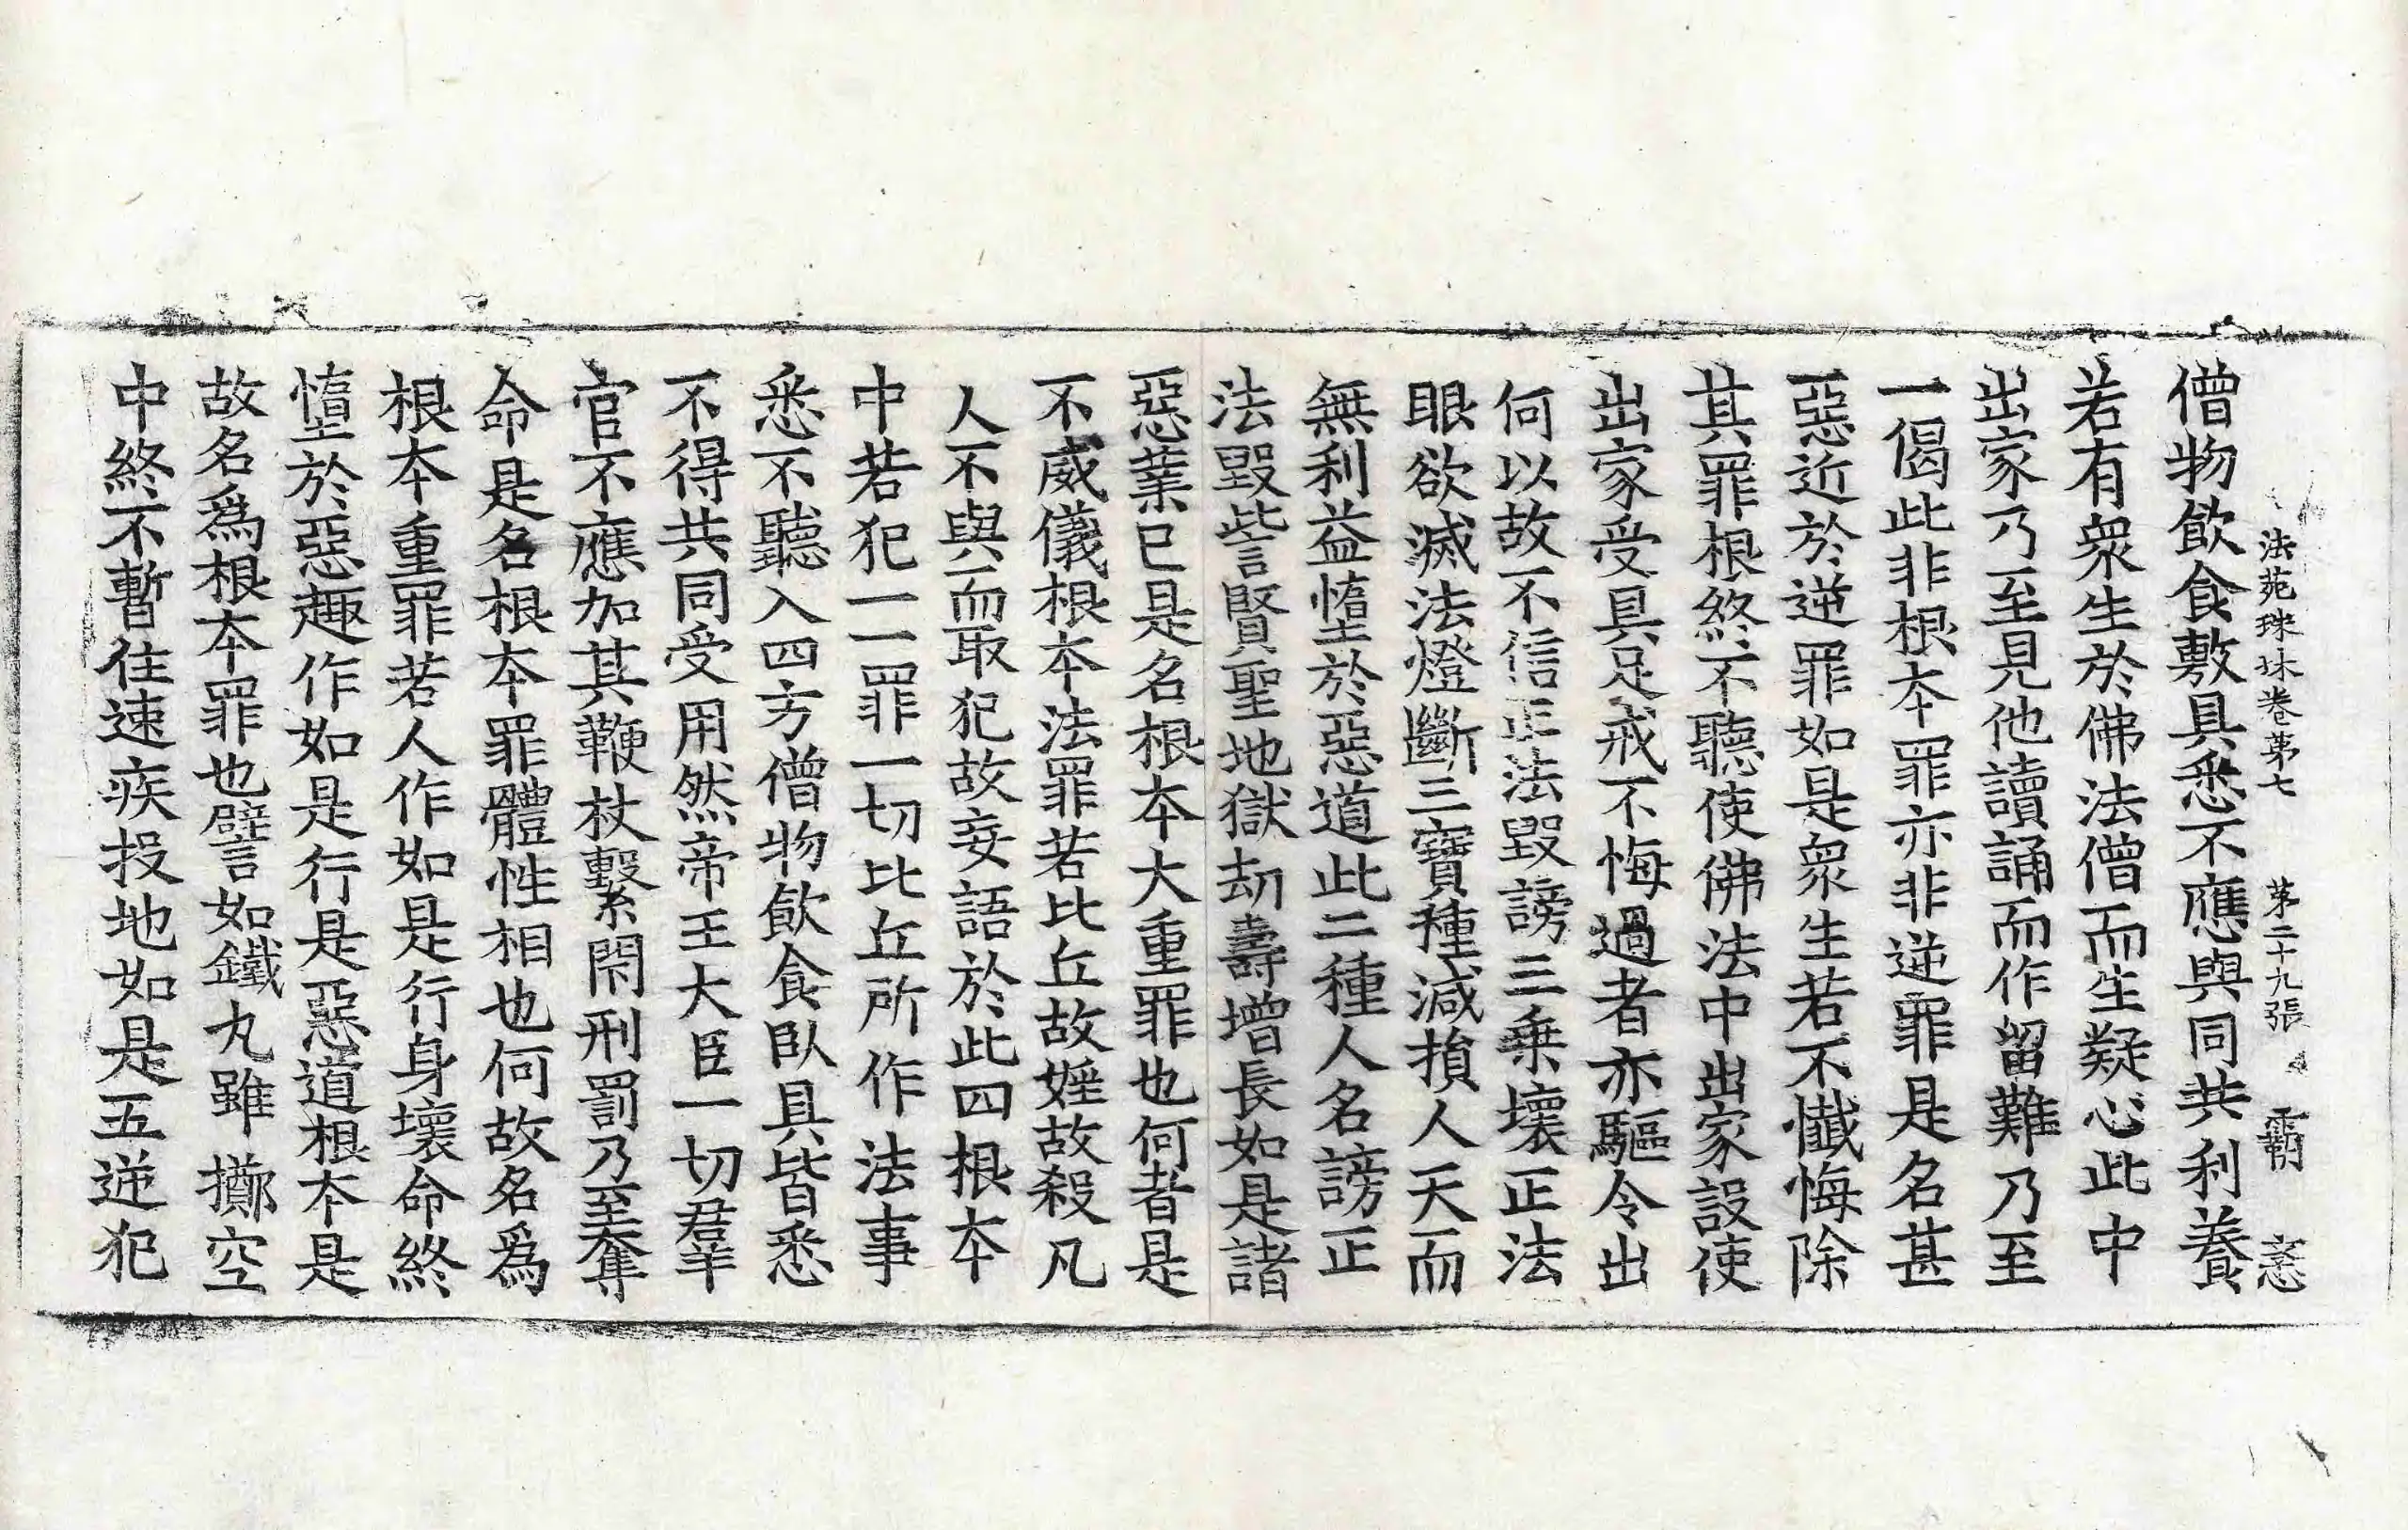 法苑珠林卷第七　第二十九張　霸　悫
僧物飲食敷具悉不應與同共利養
若有衆生於佛法僧而生疑心此中
出家乃至見他讀誦而作留難乃至
一偈此非根本罪亦非逆罪是名甚
惡近於逆罪如是衆生若不懺悔除
其罪根終不聽使佛法中出家設使
出家受具足戒不悔過者亦驅令出
何以故不信正法毀謗三乗壞正法
眼欲滅法燈斷三寶種減損人天而
無利益墮於惡道此二種人名謗正
法毀呰賢聖地獄劫壽增長如是諸
惡業已是名根本大重罪也何者是
不威儀根本法罪若比丘故婬故殺凡
人不與而取犯故妄語於此四根本
中若犯一一罪一切比丘所作法事
悉不聽入四方僧物飲食臥具皆悉
不得共同受用然帝王大臣一切羣
官不應加其鞭杖繫閇刑罰乃至奪
命是名根本罪體性相也何故名爲
根本重罪若人作如是行身壞命終
墮於惡趣作如是行是惡道根本是
故名爲根本罪也譬如鐵丸雖擲空
中終不暫住速疾投地如是五逆犯